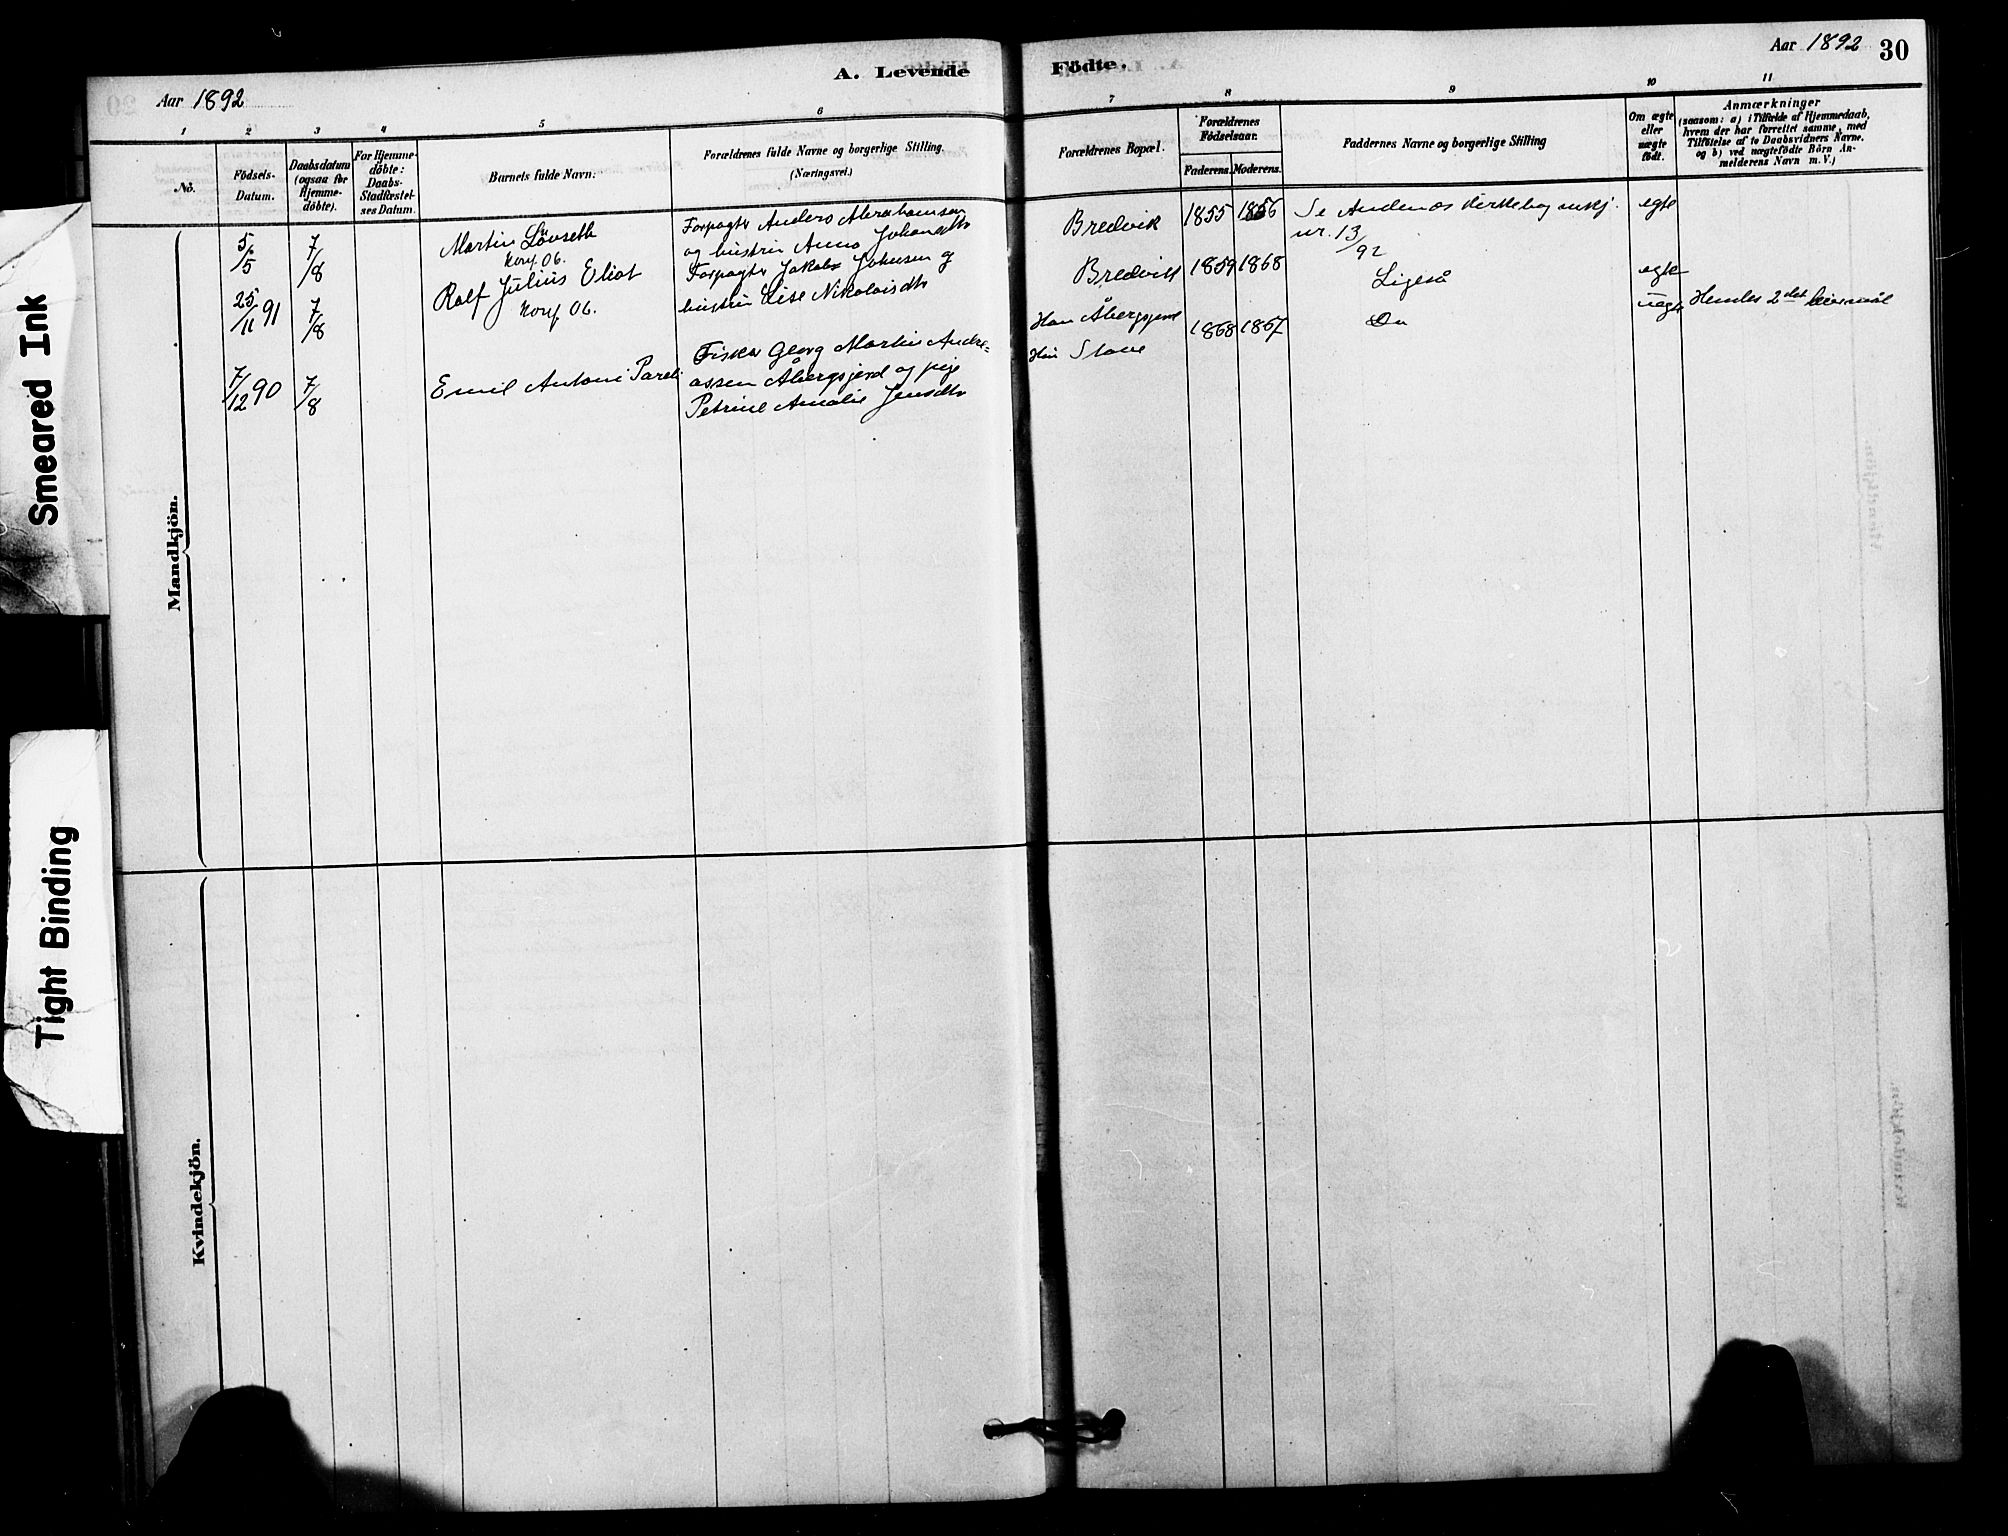 Smeared Ink
Tight Binding
A. Levende
Födte.
Aar 1892
Aar 1892
30
1 2 3 4 5 6
7 8 9 10 11
No.
Födsels-
Datum.
Daabsdatum
(ogsaa for
Hjemme-
döbte).
For Hjemme-
döbte:
Daabs-
Stadfæstel-
ses Datum.
Barnets fulde Navn:
Forældrenes fulde Navne og borgerlige Stilling.
(Næringsvei.)
Forældrenes Bopæl.
Forældrenes
Födselsaar.
Faderens. Moderens.
Faddernes Navne og borgerlige Stilling
Om ægte
eller
uægte
födt.
Anmærkninger
(saasom: a) i Tilfælde af Hjemmedaab,
hvem der har forrettet samme, med
Tilföielse af to Daabsvidners Navne.
og b) ved uægtefödte Börn An-
melderens Navn m. V.)
Mandkjön.
5/5
7/8
Martin Lövseth
Konf. 06.
Forpagter Anders Abrahamsen
og hustru Anna Johansdtr
Bredvik
1855 1856
Se Andenæs kirkebog mkj.
nr. 13/92
egte
25/11 91
7/8
Rolf Julius Eliot
Konf. 06.
Forpagter Jakob Johnsen og
hustru Lise Nikolaisdtr
Bredvik
1859 1868
Ligeså
egte
7/12 90
7/8
Emil Antoni Pareli
Fisker Georg Martin Andre-
assen Åbergsjord og pige
Petrine Amalie Jensdtr
Han Åbergsjord
Hun Stave
1868 1867
Do
uegte
Hendes 2det leiermål
Kvindekjön.